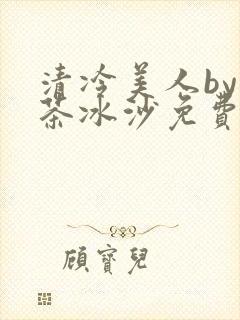 清冷美人by
茶冰沙免費
顾寶兒